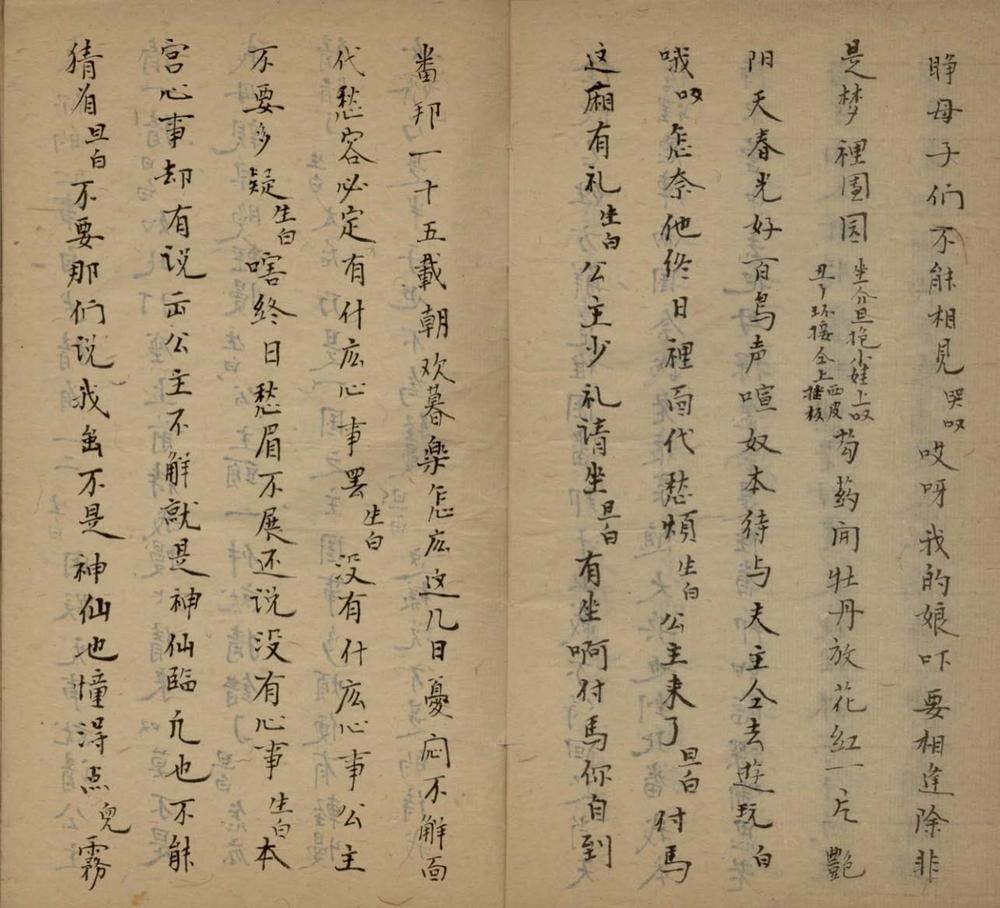 睁母子们不能相見哭叹哎呀我的娘吓要相逢除非
是梦裡团园坐介旦抱小娃上叹丑丫环接仝上西皮摇板芍药闹牡丹放花红一片艷
阳天春光好百鸟声喧奴本待与夫主仝去遊玩白
哦叹怎奈他终日裡面代愁烦生白公主来了旦白付馬
这廂有礼生白公主少礼请坐旦白有坐啊付馬你自到
番邦一十五載朝欢暮樂怎広这几日憂闷不解面
代愁容必定有什広心事罢生白没有什広心事公主
不要多疑生白嗐终日愁眉不展还说没有心事生白本
宫心事却有说出公主不解就是神仙臨凡也不能
猜着旦白不要那们说我虽不是神仙也懂得点兒霧